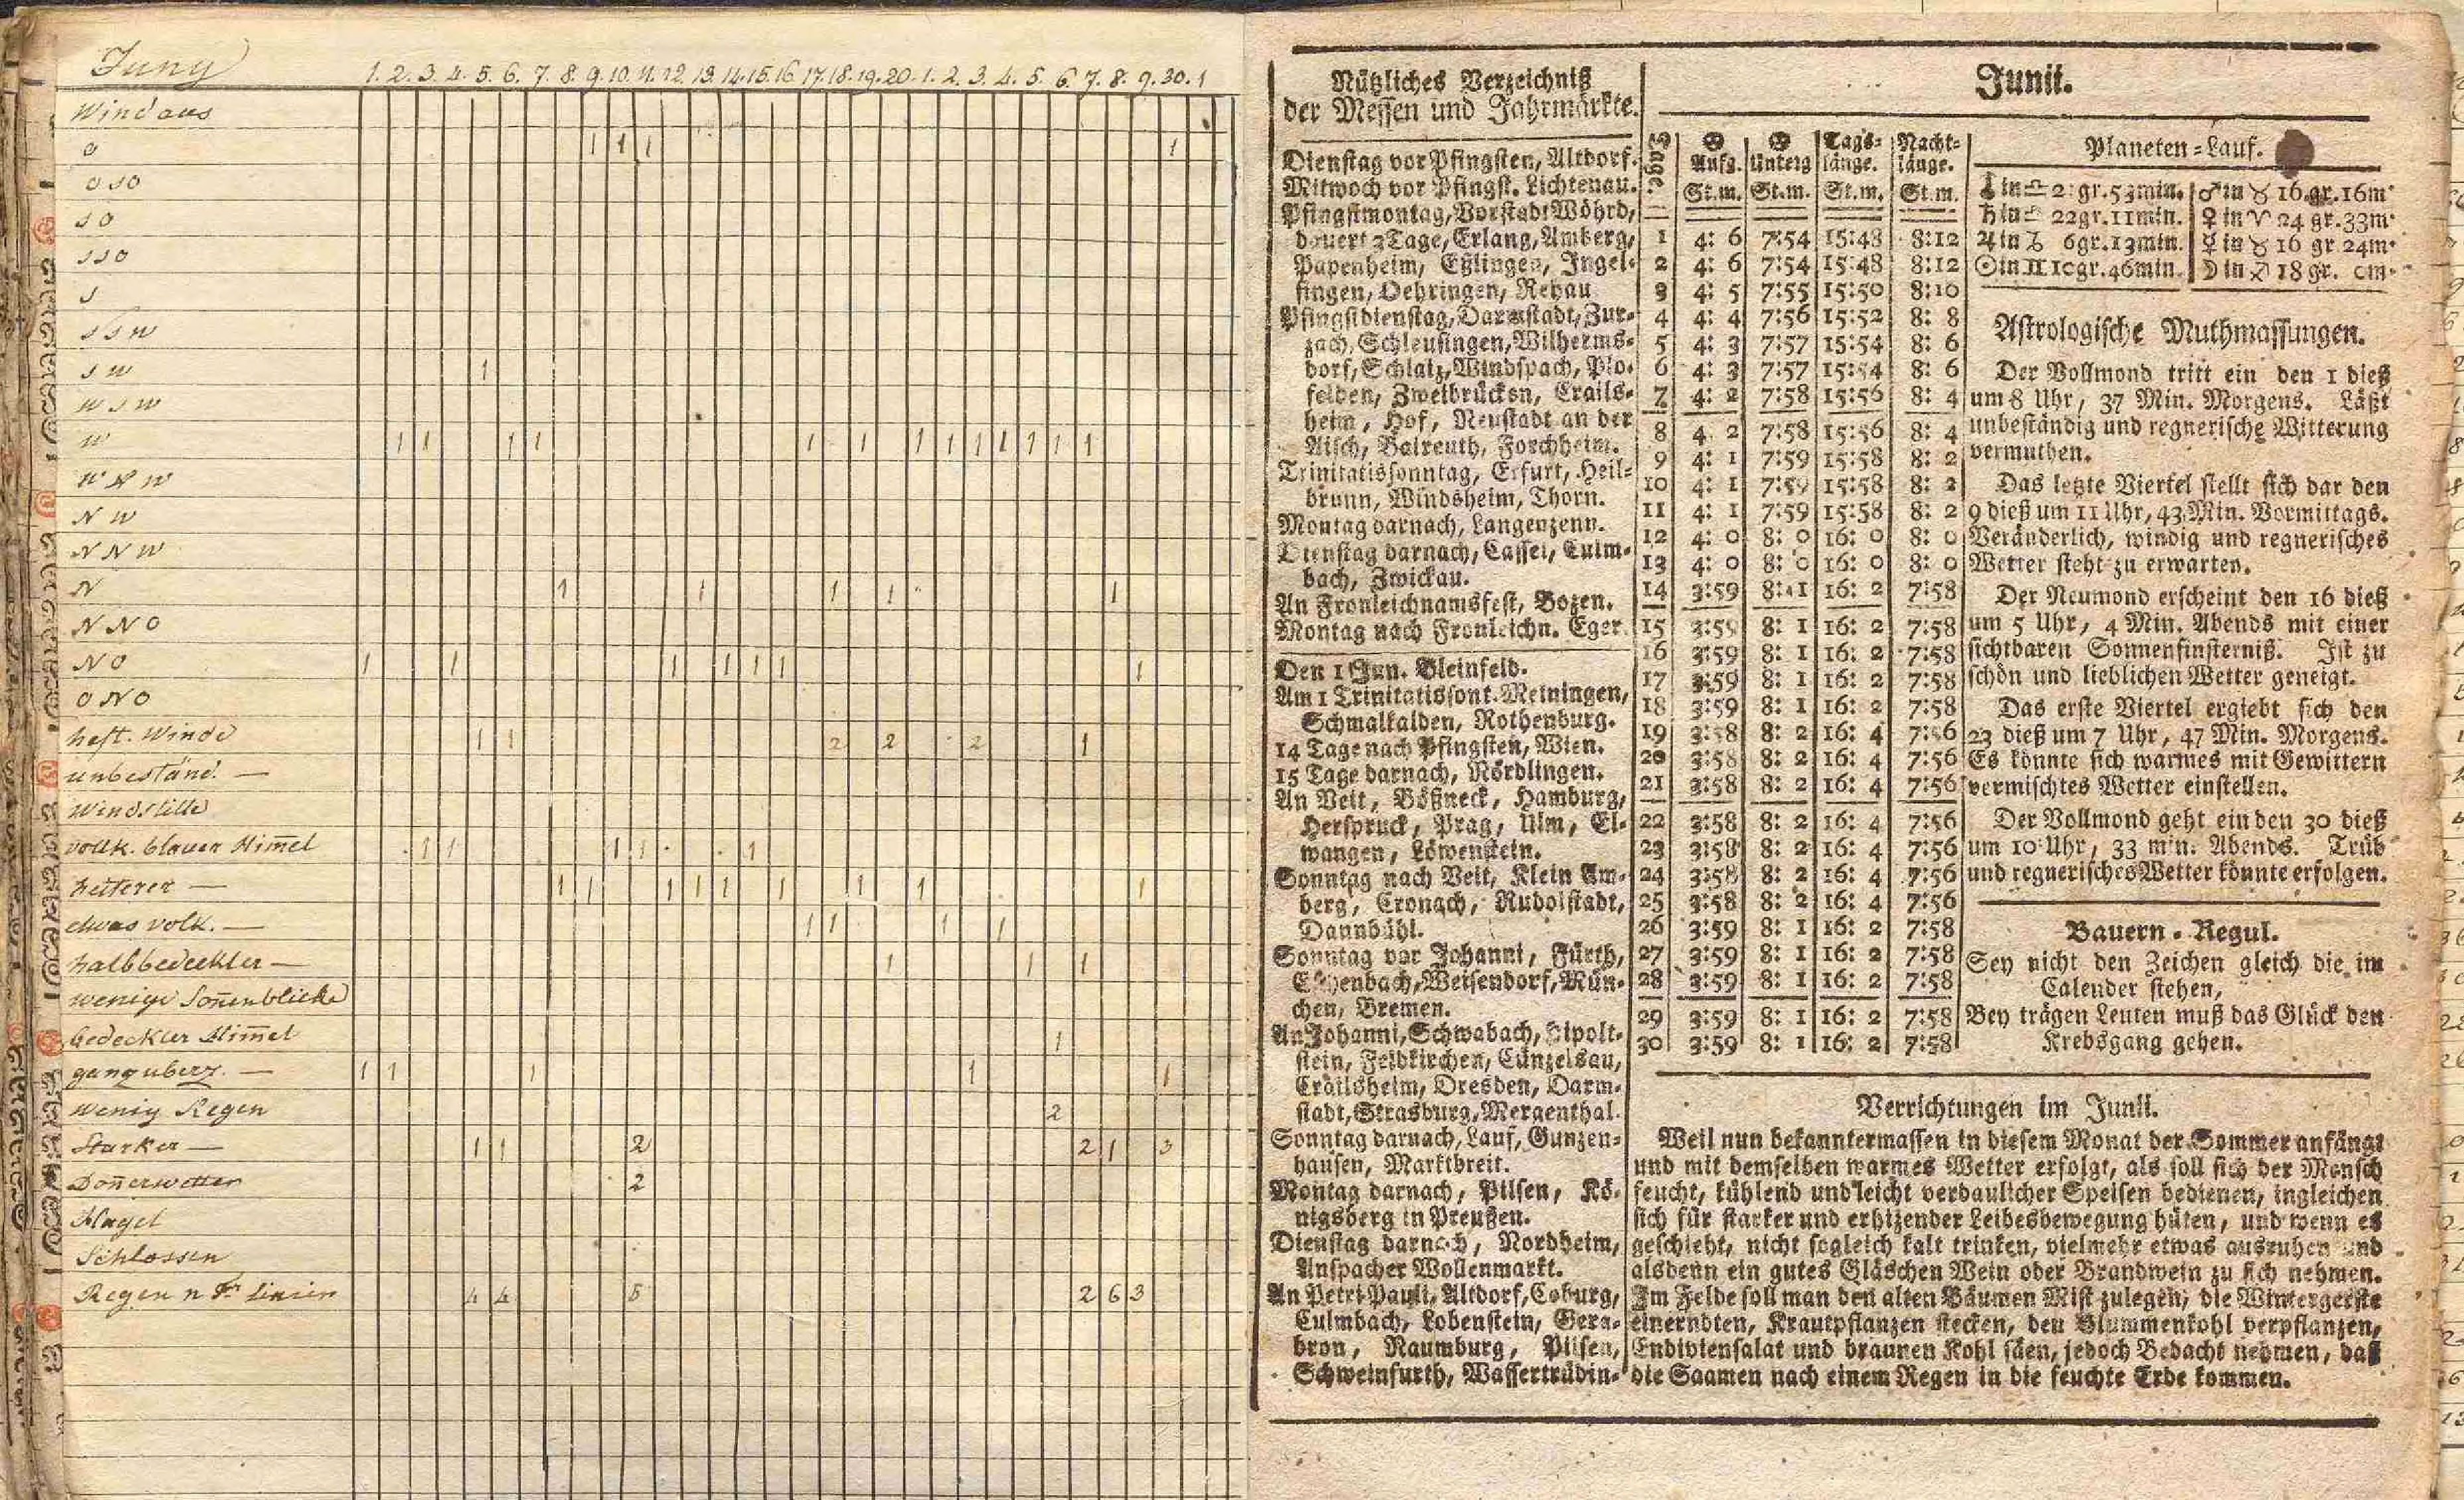 Juny 1. 2. 3. 4. 5. 6. 7. 8. 9. 10. 11. 12. 13. 14. 15. 16. 17. 18. 19. 20. 1. 2. 3. 4. 5. 6. 7. 8. 9. 30. 1
Wind aus
O 1 1 1 1
O S O
S O
S S O
S
S S W
S W 1
W S W
W 1 1 1 1 1 1 1 1 1 1 1 1 1
W N W
N W
N N W
N 1 1 1 1 1
N N O
N O 1 1 1 1 1 1 1
O N O
heft. Winde 1 1 2 2 2 1
unbeständ. —
Windstille
vollk. blauer Him̄el 1 1 1 1 1
heiterer — 1 1 1 1 1 1 1 1 1
etwas volk. — 1 1 1 1
halbbedeckter — 1 1 1
wenige Son̄enblicke
bedeckter Him̄el 1
ganz überz. — 1 1 1 1 1
wenig Regen 2
Starker — 1 1 2 2 1 3
Don̄erwetter 2
Hagel
Schlossen
Regen n Linien 4 4 5 2 6 3
Nützliches Verzeichniß
der Messen und Jahrmärkte.
Dienstag vor Pfingsten, Altdorf.
Mitwoch vor Pfingst. Lichtenau.
Pfingstmontag, Vorstadt Wöhrd,
dauert 3 Tage, Erlang, Amberg,
Papenheim, Eßlingen, Ingel-
fingen, Oehringen, Rehau
Pfingstdienstag, Darmstadt, Zur-
zach, Schleusingen, Wilherms-
dorf, Schlaiz, Windspach, Plo-
felden, Zweibrücken, Crails-
heim, Hof, Neustadt an der
Aisch, Baireuth, Forchheim.
Trinitatissonntag, Erfurt, Heil-
brunn, Windsheim, Thorn.
Montag darnach, Langenzenn.
Dienstag darnach, Cassel, Culm-
bach, Zwickau.
An Fronleichnamsfest, Bozen.
Montag nach Fronleichn. Eger.
Den 1 Jun. Bleinfeld.
Am 1 Trinitatissont. Meiningen,
Schmalkalden, Rothenburg.
14 Tage nach Pfingsten, Wien.
15 Tage darnach, Nördlingen.
An Veit, Bößneck, Hamburg,
Herspruck, Prag, Ulm, El-
wangen, Löwenstein.
Sonntag nach Veit, Klein Am-
berg, Cronach, Rudolstadt,
Dannbühl.
Sonntag vor Johanni, Fürth,
Eschenbach, Weisendorf, Mün-
chen, Bremen.
An Johanni, Schwabach, Hipolt-
stein, Feldkirchen, Cünzelsau,
Crailsheim, Dresden, Darm-
stadt, Strasburg, Mergenthal.
Sonntag darnach, Lauf, Gunzen-
hausen, Marktbreit.
Montag darnach, Pilsen, Kö-
nigsberg in Preußen.
Dienstag darnach, Nordheim,
Anspacher Wollenmarkt.
An Petri Pauli, Altdorf, Coburg,
Culmbach, Lobenstein, Gera-
bron, Naumburg, Pilsen,
Schweinfurth, Wassertrüdin-
Junii.
Tage ☉ Aufg. ☉ Unterg Tags-länge. Nacht-länge.
St.m. St.m. St.m. St.m.
1 4: 6 7:54 15:48 8:12
2 4: 6 7:54 15:48 8:12
3 4: 5 7:55 15:50 8:10
4 4: 4 7:56 15:52 8: 8
5 4: 3 7:57 15:54 8: 6
6 4: 3 7:57 15:54 8: 6
7 4: 2 7:58 15:56 8: 4
8 4 2 7:58 15:56 8: 4
9 4: 1 7:59 15:58 8: 2
10 4: 1 7:59 15:58 8: 2
11 4: 1 7:59 15:58 8: 2
12 4: 0 8: 0 16: 0 8: 0
13 4: 0 8: 0 16: 0 8: 0
14 3:59 8: 1 16: 2 7:58
15 3:59 8: 1 16: 2 7:58
16 3:59 8: 1 16: 2 7:58
17 3:59 8: 1 16: 2 7:58
18 3:59 8: 1 16: 2 7:58
19 3:58 8: 2 16: 4 7:56
20 3:58 8: 2 16: 4 7:56
21 3:58 8: 2 16: 4 7:56
22 3:58 8: 2 16: 4 7:56
23 3:58 8: 2 16: 4 7:56
24 3:58 8: 2 16: 4 7:56
25 3:58 8: 2 16: 4 7:56
26 3:59 8: 1 16: 2 7:58
27 3:59 8: 1 16: 2 7:58
28 3:59 8: 1 16: 2 7:58
29 3:59 8: 1 16: 2 7:58
30 3:59 8: 1 16: 2 7:58
Planeten-Lauf.
in ♎ 2 gr. 53 min. ♂ in ♉ 16 gr. 16 m
♄ in ♎ 22 gr. 11 min. ♀ in ♈ 24 gr. 33 m
♃ in ♑ 6 gr. 13 min. ☿ in ♉ 16 gr 24 m
☉ in ♊ 10 gr. 46 min. ☽ in ♐ 18 gr. 0 m
Astrologische Muthmassungen.
Der Vollmond tritt ein den 1 dieß
um 8 Uhr, 37 Min. Morgens. Läßt
unbeständig und regnerische Witterung
vermuthen.
Das letzte Viertel stellt sich dar den
9 dieß um 11 Uhr, 43 Min. Vormittags.
Veränderlich, windig und regnerisches
Wetter steht zu erwarten.
Der Neumond erscheint den 16 dieß
um 5 Uhr, 4 Min. Abends mit einer
sichtbaren Sonnenfinsterniß. Ist zu
schön und lieblichen Wetter geneigt.
Das erste Viertel ergiebt sich den
23 dieß um 7 Uhr, 47 Min. Morgens.
Es könnte sich warmes mit Gewittern
vermischtes Wetter einstellen.
Der Vollmond geht ein den 30 dieß
um 10 Uhr, 33 min. Abends. Trüb
und regnerisches Wetter könnte erfolgen.
Bauern-Regul.
Sey nicht den Zeichen gleich die im
Calender stehen,
Bey trägen Leuten muß das Glück den
Krebsgang gehen.
Verrichtungen im Junii.
Weil nun bekanntermassen in diesem Monat der Sommer anfängt
und mit demselben warmes Wetter erfolgt, als soll sich der Mensch
feucht, kühlend und leicht verdaulicher Speisen bedienen, ingleichen
sich für starker und erhizender Leibesbewegung hüten, und wenn es
geschieht, nicht sogleich kalt trinken, vielmehr etwas ausruhen und
alsdenn ein gutes Gläschen Wein oder Brandwein zu sich nehmen.
Im Felde soll man den alten Bäumen Mist zulegen, die Wintergerste
einerndten, Krautpflanzen stecken, den Blummenkohl verpflanzen,
Endiviensalat und braunen Kohl säen, jedoch Bedacht nehmen, daß
die Saamen nach einem Regen in die feuchte Erde kommen.